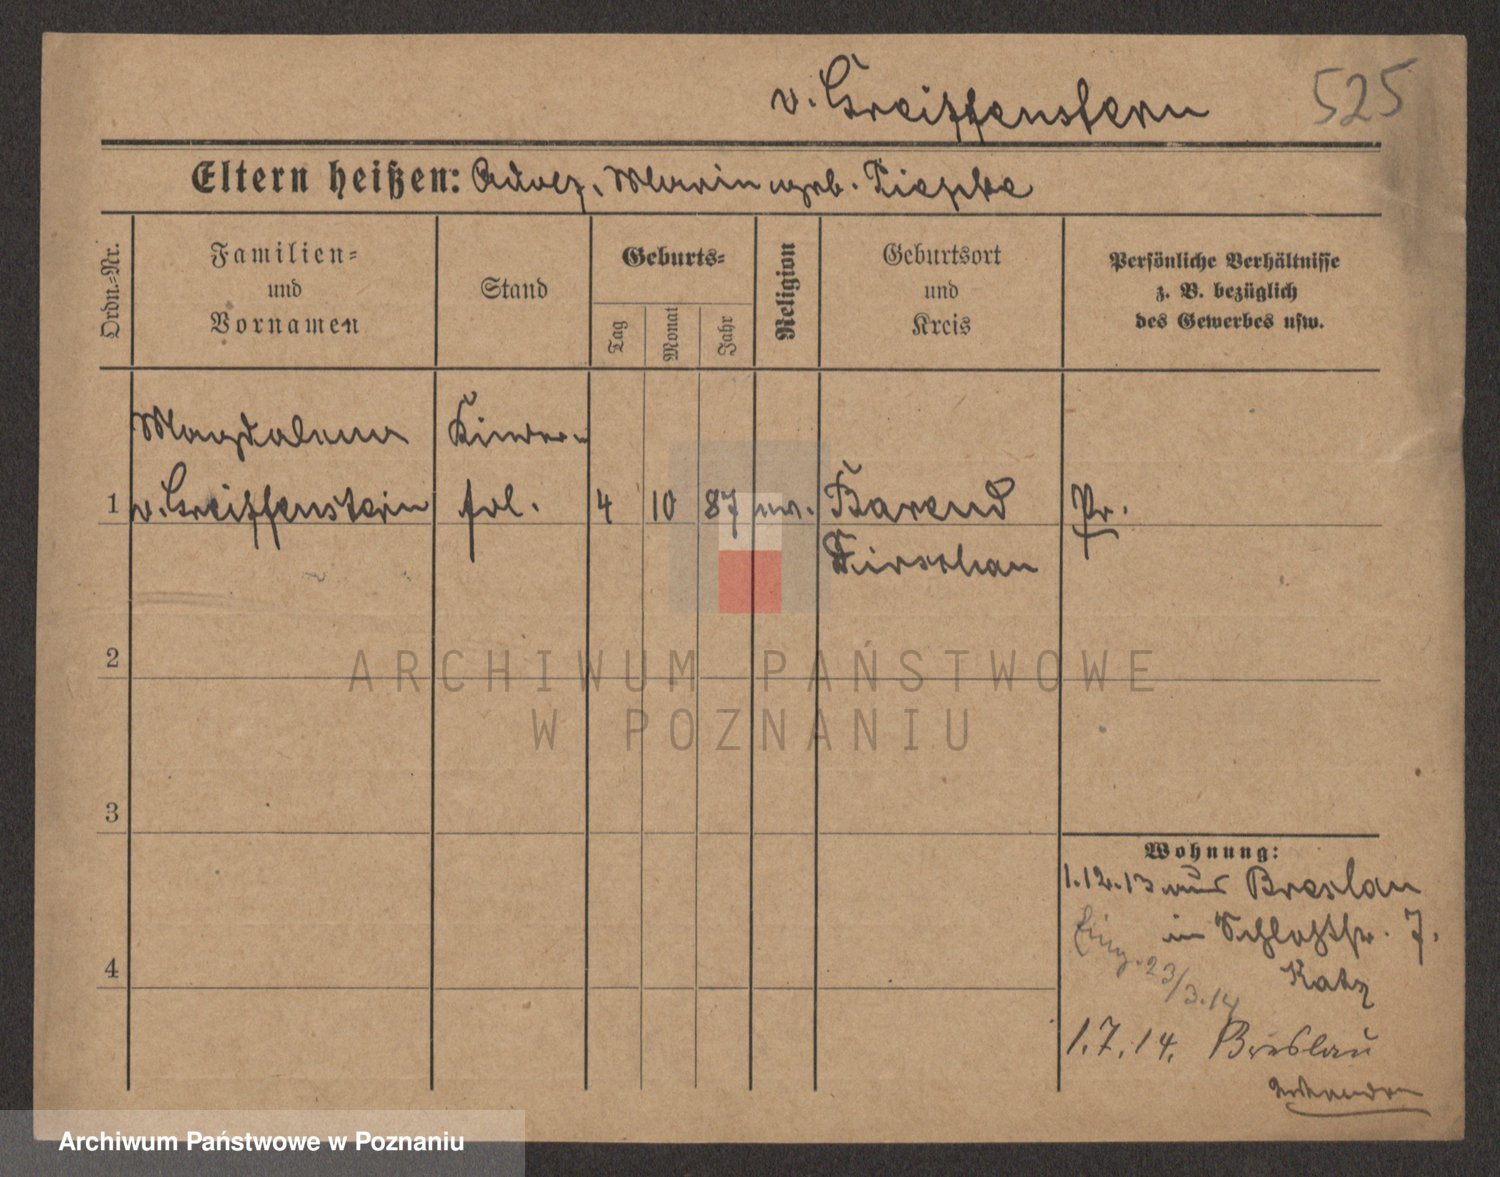 v. Greiffenstern 525
Eltern heißen: Adolf, Marie geb. Piepke
Ordn.=Nr.
Familien=
und
Vornamen
Stand
Geburts=
Tag
Monat
Jahr
Religion
Geburtsort
und
Kreis
Persönliche Verhältnisse
z. B. bezüglich
des Gewerbes usw.
Magdalena Kinder=
1 v. Greiffenstern frl. 4 10 87 ev. Barend Pr.
Dirschau
2
3
4
Wohnung:
1.12.13 aus Breslau
in Schloßstr. 7.
Katz
Eing. 23/3.14
1.7.14. Breslau
ARCHIWUM PAŃSTWOWE
W POZNANIU
Archiwum Państwowe w Poznaniu